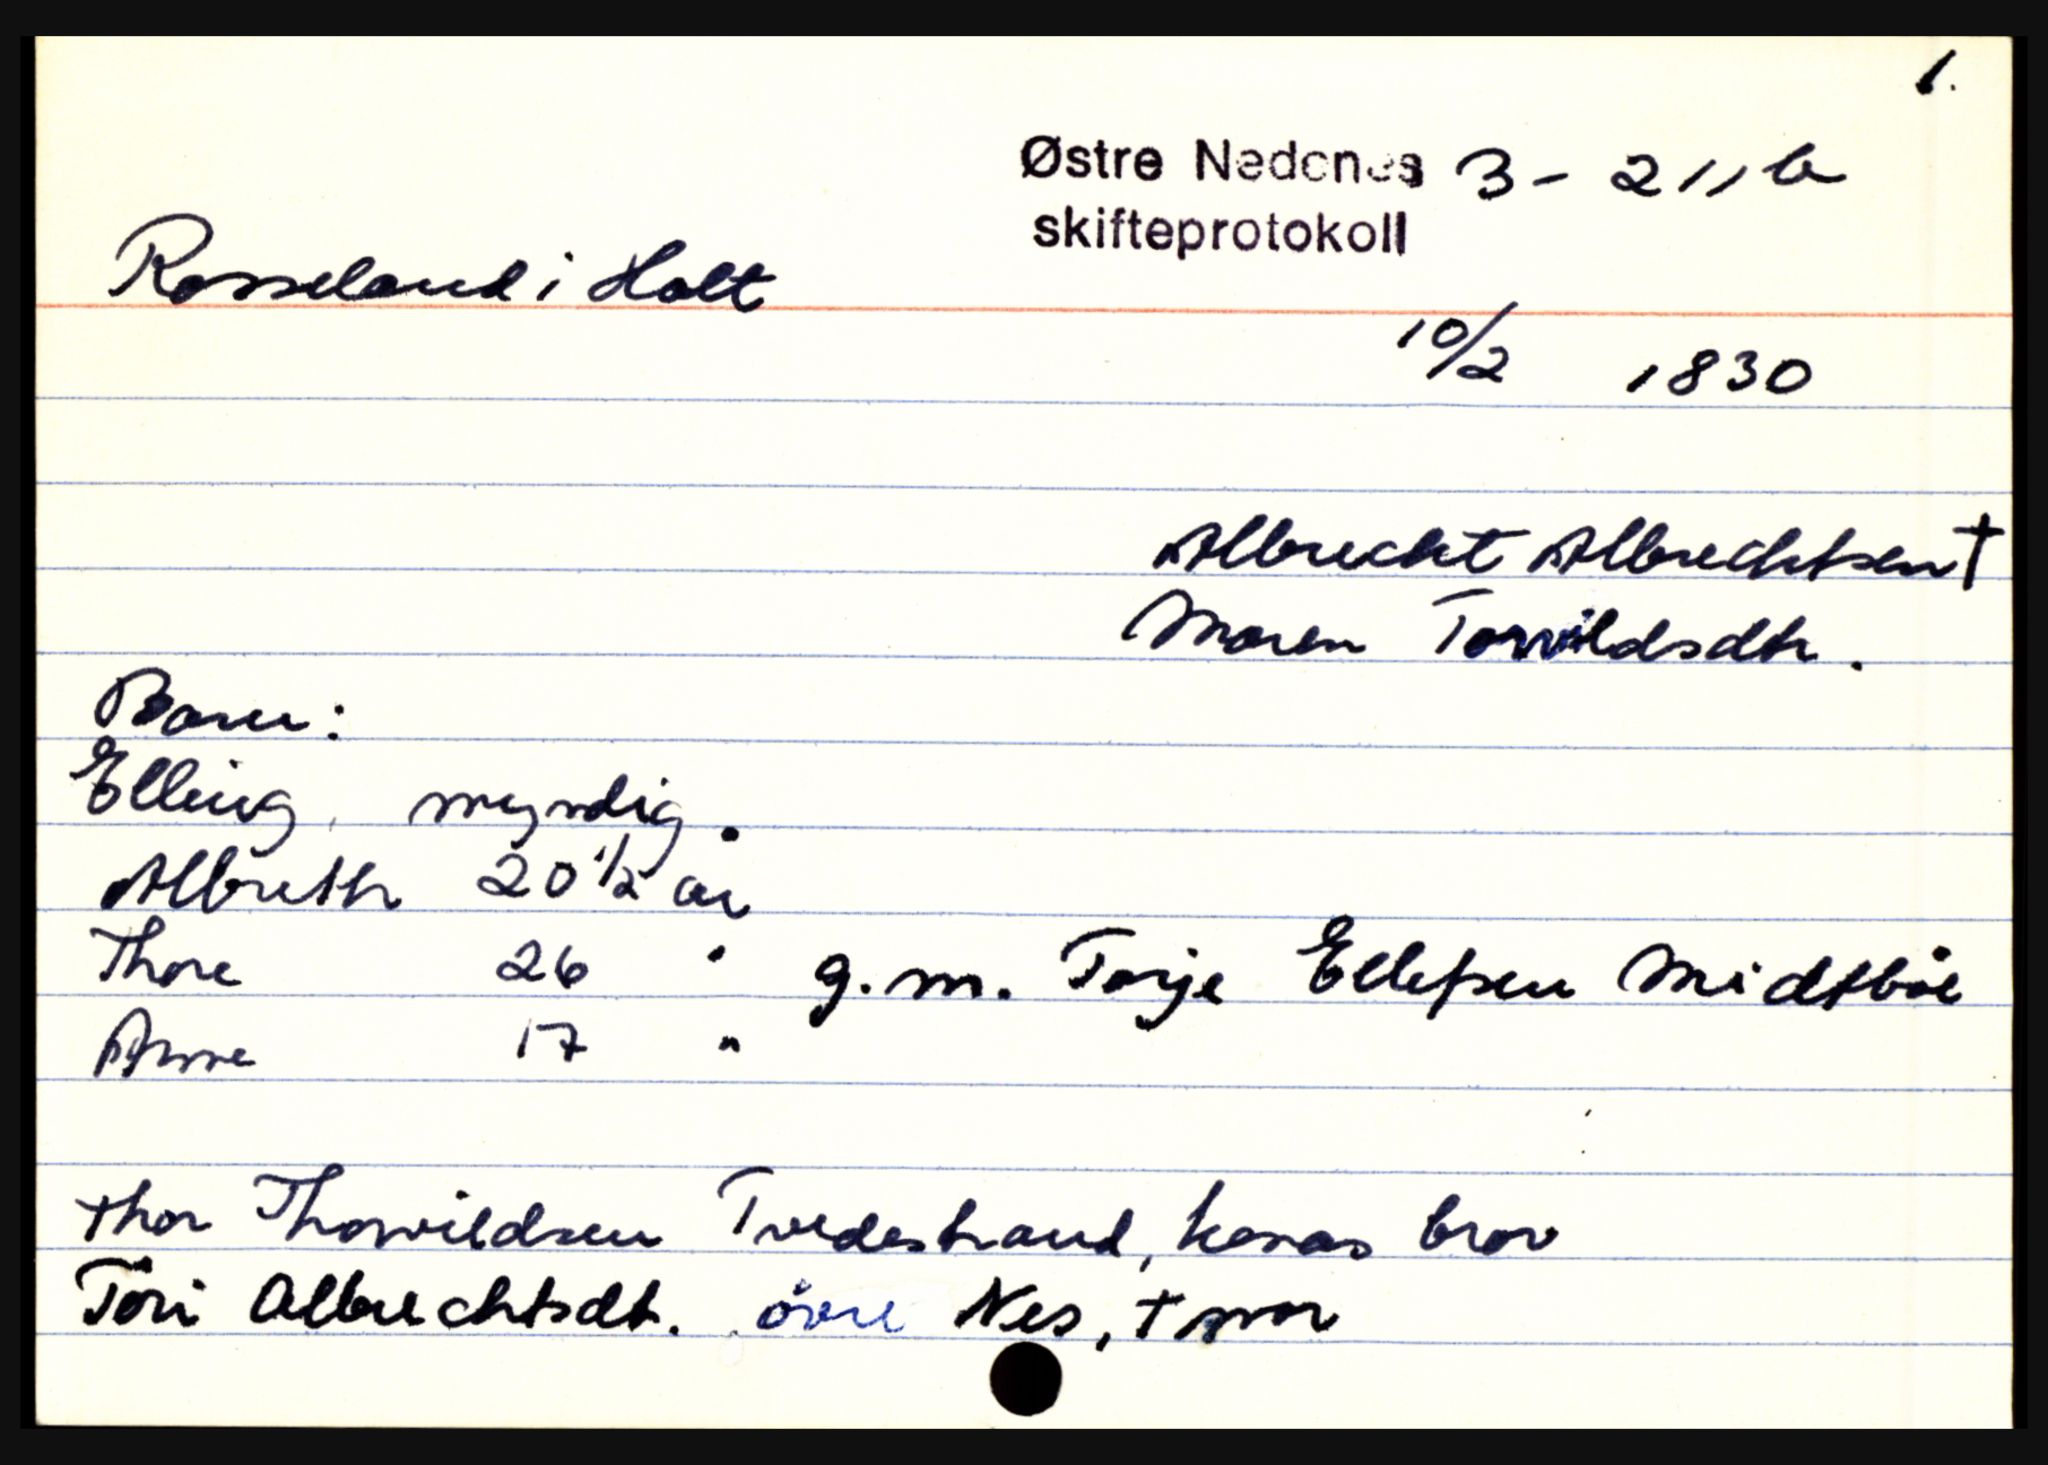 1.
Østre Nedenes 3 - 211 b
skifteprotokoll
Rosseland i Holt
10/2 1830
Albrecht Albrechtsen †
Maren Torvildsdtr.
Barn:
Elling, myndig.
Albreth 20 1/2 år
Thore 26 " g. m. Torje Ellefsen Midtböe
Anne 17 "
Thor Thorvildsen Tvedestrand, konas bror
Töri Albrechtsdt. övre Nes, † mor